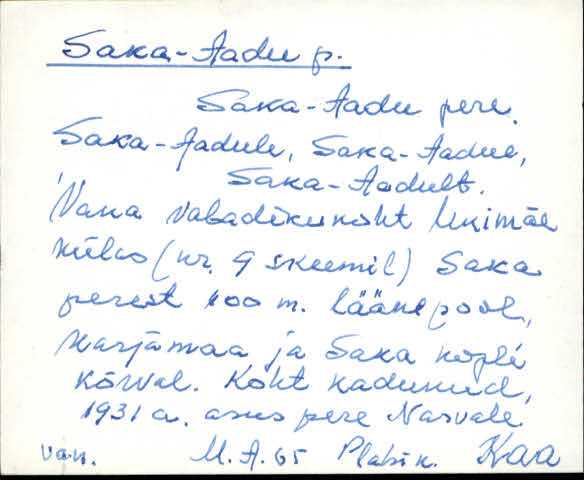 Saka-Aadu p.
Saka-Aadu pere.
Saka-Aadule, Saka-Aadul,
Saka-Aadult.
Vana vabadikukoht Unimäe
külas (nr. 9 skeemil) Saka
perest 400 m. lääne pool,
karjamaa ja Saka kopli
kõrval. Koht kadunud,
1931 a. asus pere Narvale.
van. M.A. 65 Kaa